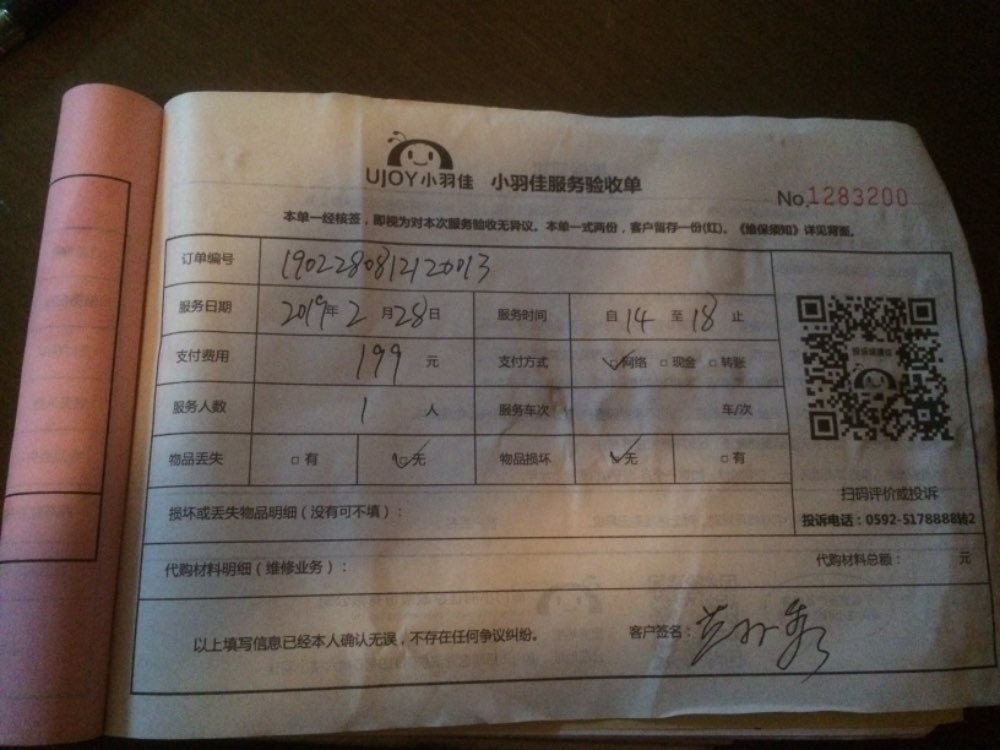 UJOY小羽佳 小羽佳服务验收单
No.1283200
本单一经核签，即视为对本次服务验收无异议。本单一式两份，客户留存一份(红)。《维保须知》详见背面。
订单编号 1902280812120013
服务日期 2019年2月28日 服务时间 自14至18止
支付费用 199元 支付方式 ☑网络 □现金 □转账
服务人数 1人 服务车次 车/次
物品丢失 □有 ☑无 物品损坏 ☑无 □有
投诉或建议
扫码评价或投诉
投诉电话：0592-5178888转2
损坏或丢失物品明细（没有可不填）：
代购材料明细（维修业务）： 代购材料总额： 元
以上填写信息已经本人确认无误，不存在任何争议纠纷。 客户签名：